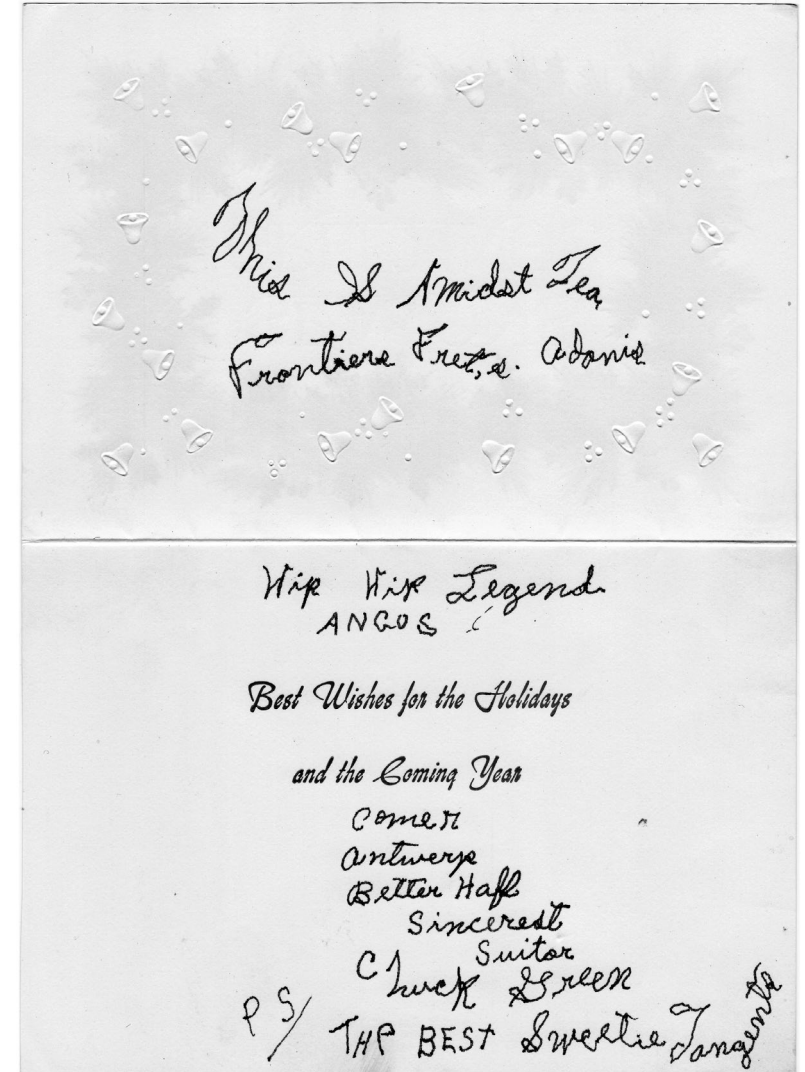 This Is Amidst Tea,
Frontiers Fret,s. Adonis
Hip Hip Legend
ANGUS
Best Wishes for the Holidays
and the Coming Year
Comer
Antwerp
Better Haff
Sincerest
Suitor
Chuck Green
PS/ THP BEST Sweetie Tangents